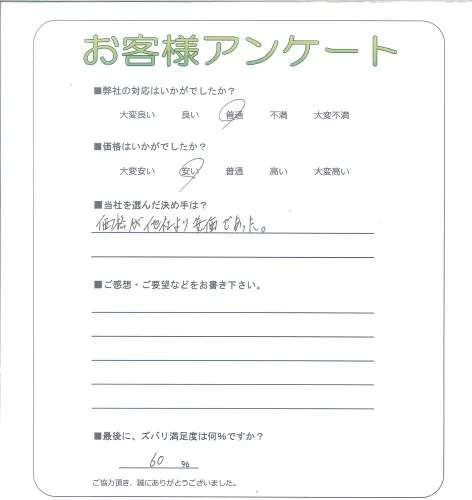 お客様アンケート
■弊社の対応はいかがでしたか？
大変良い 良い 普通 不満 大変不満
■価格はいかがでしたか？
大変安い 安い 普通 高い 大変高い
■当社を選んだ決め手は？
価格が他社より安価であった。
■ご感想・ご要望などをお書き下さい。
■最後に、ズバリ満足度は何％ですか？
60 ％
ご協力頂き、誠にありがとうございました。